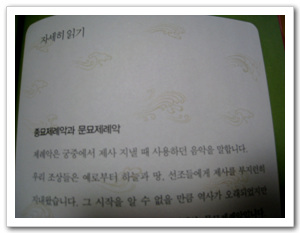 자세히 읽기
종묘제례악과 문묘제례악
제례악은 궁중에서 제사 지낼 때 사용하던 음악을 말합니다.
우리 조상들은 예로부터 하늘과 땅, 선조들에게 제사를
지내왔습니다. 그 시작을 알 수 없을 만큼 역사가 오래되었지만